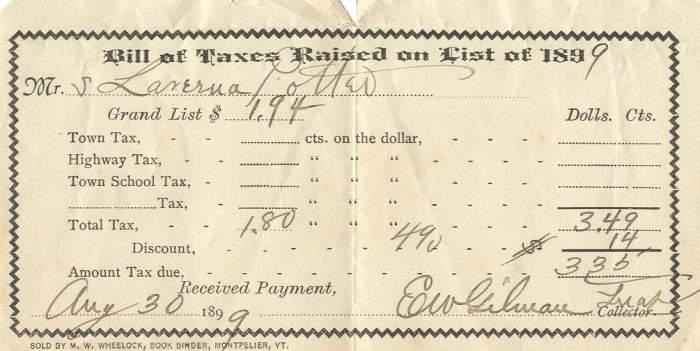 Bill of Taxes Raised on List of 1899
Mrs Laverna Potter
Grand List $ 1.94 Dolls. Cts.
Town Tax, - - cts. on the dollar, - - - -
Highway Tax, - - " " " - - - -
Town School Tax, - " " " - - - -
Tax, - " " " - - - -
Total Tax, - - 1.80 " " " - - - - 3.49
Discount, - - - - - 4% - - $ 14
Amount Tax due, - - - - - - - - - 3 35
Received Payment,
Aug 30 1899 EW Gilman Treas
Collector.
SOLD BY M. W. WHEELOCK, BOOK BINDER, MONTPELIER, VT.